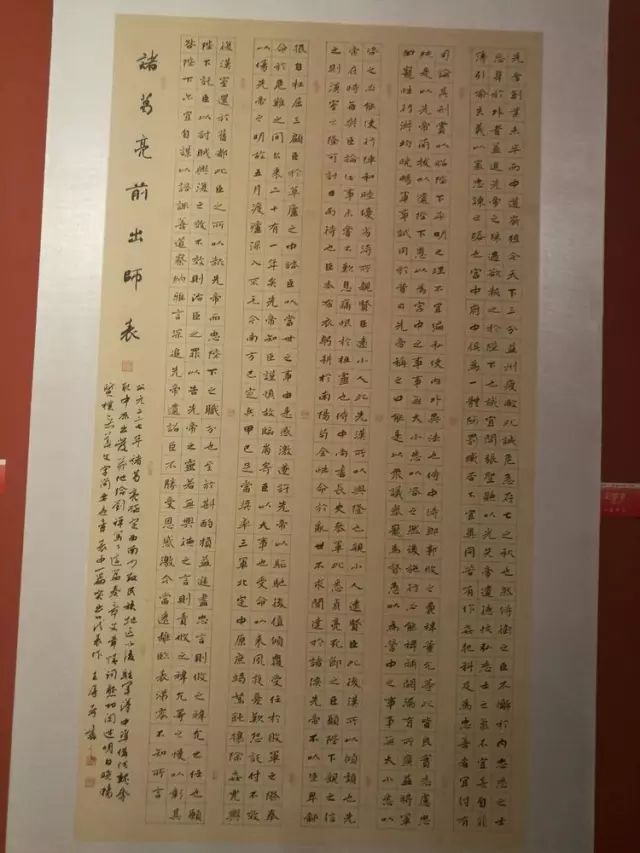 先帝創業未半而中道崩殂今天下三分益州疲敝此誠危急存亡之秋也然侍衛之臣不懈於內忠志之士
忘身於外者蓋追先帝之殊遇欲報之於陛下也誠宜開張聖聽以光先帝遺德恢弘志士之氣不宜妄自菲
薄引喻失義以塞忠諫之路也宮中府中俱為一體陟罰臧否不宜異同若有作姦犯科及為忠善者宜付有
司論其刑賞以昭陛下平明之理不宜偏私使內外異法也侍中侍郎郭攸之費禕董允等此皆良實志慮忠
純是以先帝簡拔以遺陛下愚以為宮中之事事無大小悉以咨之然後施行必能裨補闕漏有所廣益將軍
向寵性行淑均曉暢軍事試用於昔日先帝稱之曰能是以眾議舉寵為督愚以為營中之事事無大小悉以
咨之必能使行陣和睦優劣得所親賢臣遠小人此先漢所以興隆也親小人遠賢臣此後漢所以傾頹也先
帝在時每與臣論此事未嘗不歎息痛恨於桓靈也侍中尚書長史參軍此悉貞亮死節之臣願陛下親之信
之則漢室之隆可計日而待也臣本布衣躬耕於南陽苟全性命於亂世不求聞達於諸侯先帝不以臣卑鄙
猥自枉屈三顧臣於草廬之中諮臣以當世之事由是感激遂許先帝以驅馳後值傾覆受任於敗軍之際奉
命於危難之間爾來二十有一年矣先帝知臣謹慎故臨崩寄臣以大事也受命以來夙夜憂歎恐託付不效
以傷先帝之明故五月渡瀘深入不毛今南方已定兵甲已足當獎率三軍北定中原庶竭駑鈍攘除姦兇興
復漢室還於舊都此臣之所以報先帝而忠陛下之職分也至於斟酌損益進盡忠言則攸之禕允之任也願
陛下託臣以討賊興復之效不效則治臣之罪以告先帝之靈若無興德之言則責攸之禕允等之慢以彰其
咎陛下亦宜自謀以諮諏善道察納雅言深追先帝遺詔臣不勝受恩感激今當遠離臨表涕零不知所言
諸葛亮前出師表
公元二二七年諸葛亮